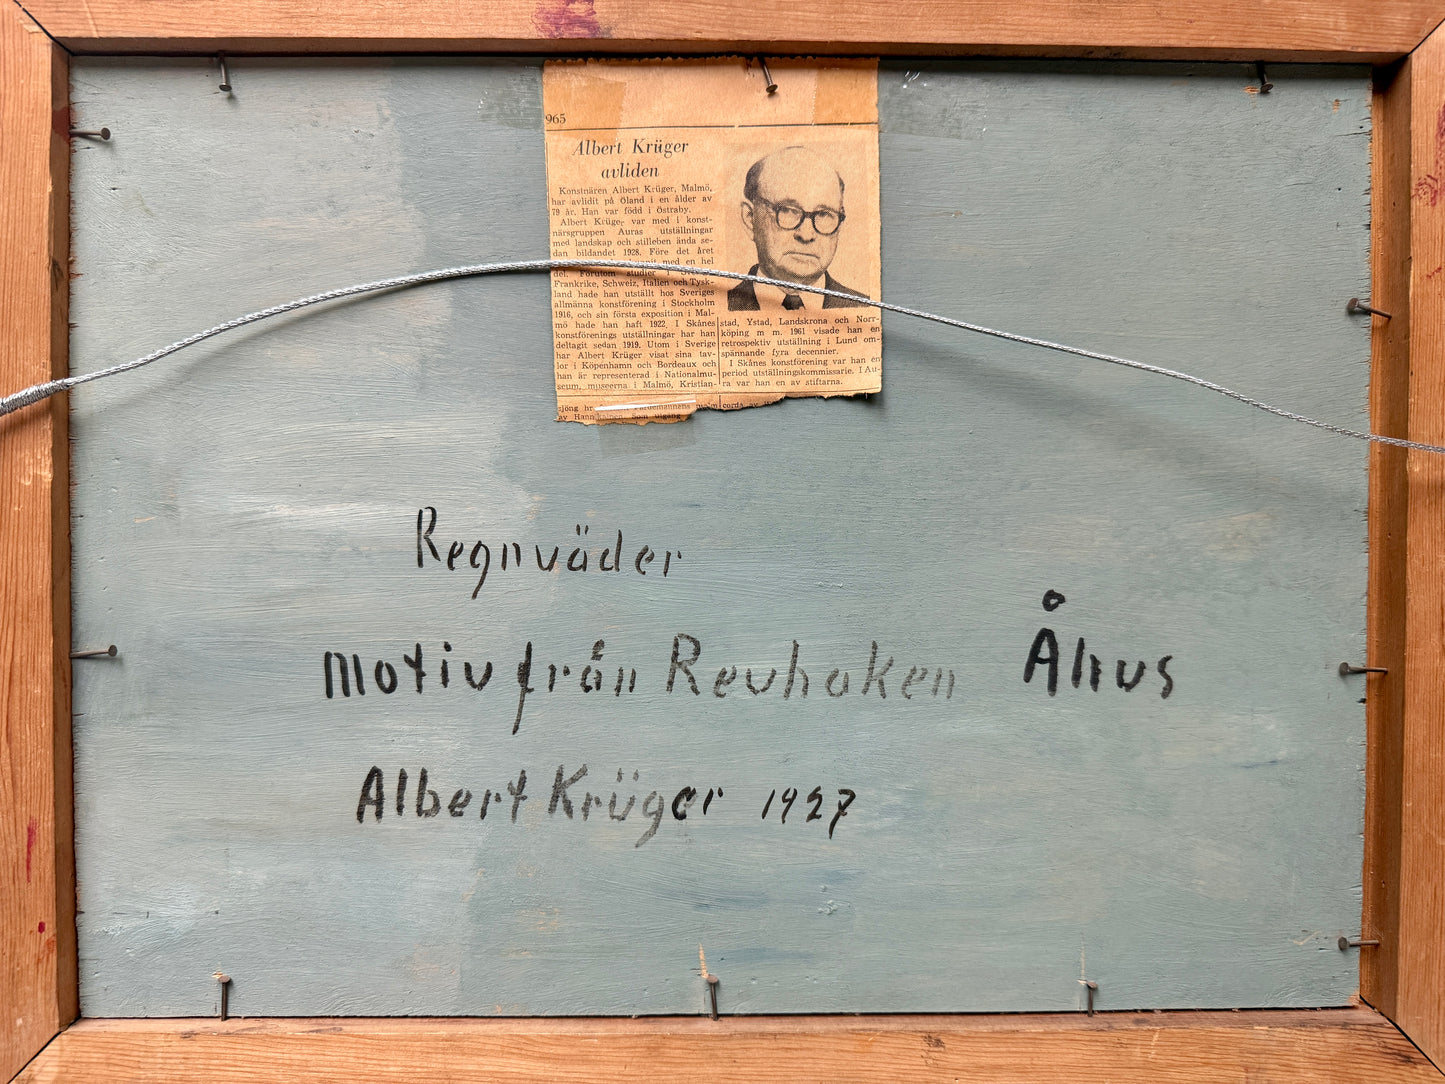 965
Albert Krüger
avliden
Konstnären Albert Krüger, Malmö,
har avlidit på Öland i en ålder av
79 år. Han var född i Östraby.
Albert Krüger var med i konst-
närsgruppen Auras utställningar
med landskap och stilleben ända se-
dan bildandet 1928. Före det året
med en hel
del. Förutom studier i
Frankrike, Schweiz, Italien och Tysk-
land hade han utställt hos Sveriges
allmänna konstförening i Stockholm
1916, och sin första exposition i Mal-
mö hade han haft 1922. I Skånes
konstförenings utställningar har han
deltagit sedan 1919. Utom i Sverige
har Albert Krüger visat sina tav-
lor i Köpenhamn och Bordeaux och
han är representerad i Nationalmu-
seum, museerna i Malmö, Kristian-
stad, Ystad, Landskrona och Norr-
köping m m. 1961 visade han en
retrospektiv utställning i Lund om-
spännande fyra decennier.
I Skånes konstförening var han en
period utställningskommissarie. I Au-
ra var han en av stiftarna.
sjöng hr.
av Som utgång
corda av
Regnväder
motiv från Revhaken Åhus
Albert Krüger 1927